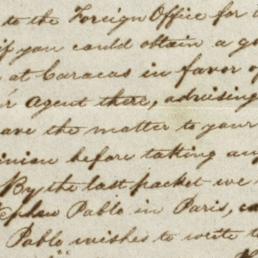 to the Foreign Office for a
if you could obtain a go
at Caracas in favor of
r agent there, advising
ave the matter to your
inion before taking an
By the last packet we
ephen Pablo in Paris, ca
Pablo wishes to write t